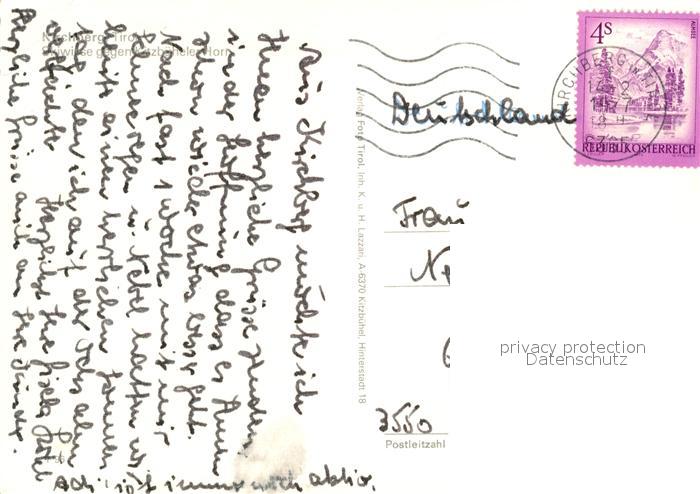 Kirchberg, Tirol
Skiwiese gegen Kitzbüheler Horn
Aus Kirchberg möchte ich
Ihnen herzliche Grüsse senden
in der Hoffnung dass es Ihnen
schon wieder etwas besser geht.
Nach fast 1 Woche mit
Schneeregen u. Nebel hatten wir
heute einen herrlichen Sonnen
tag den ich auf der
Herzlichst Ihre Gisela
Herzliche Grüsse auch an Ihre Kinder.
Adi ist immer noch aktiv.
Verlag Foto Tirol, Inh. K. u. H. Lazzari, A-6370 Kitzbühel, Hinterstadt 18
Deutschland
Frau
3550
Postleitzahl
4 S
ALMSEE
REPUBLIK ÖSTERREICH
KIRCHBERG IN TIROL
privacy protection
Datenschutz